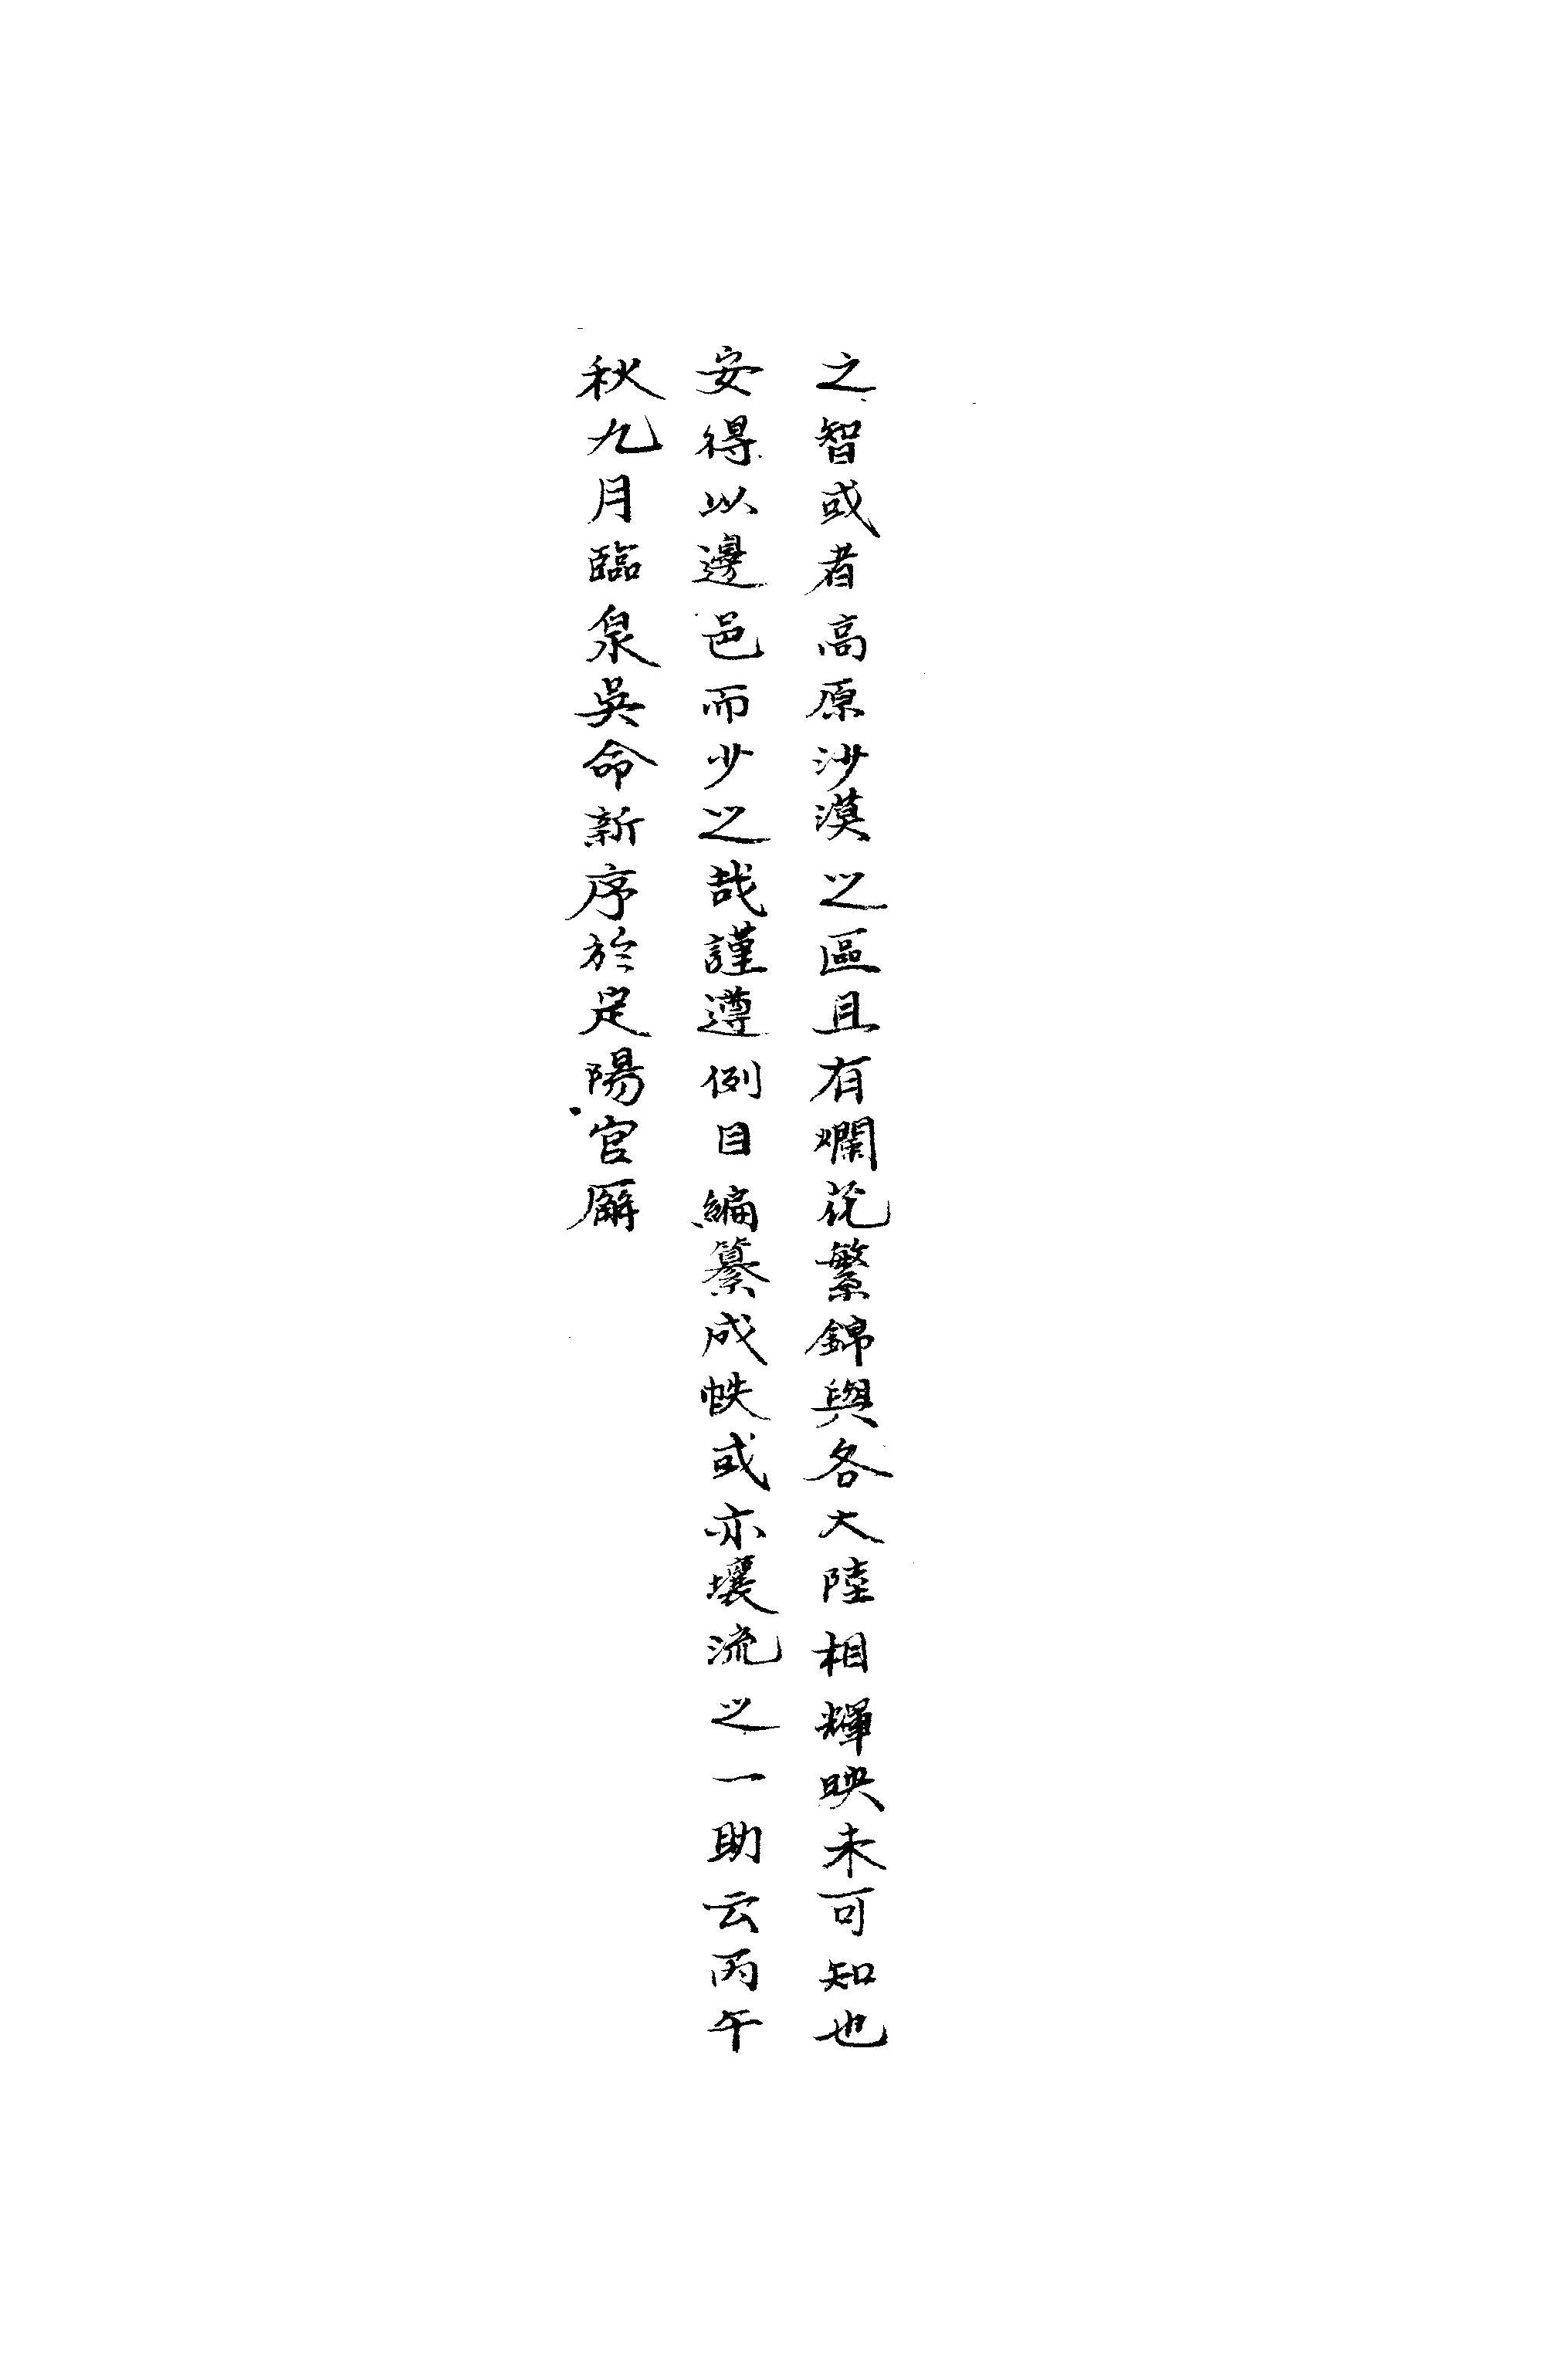 之智或者高原沙漠之區且有爛花繁錦與各大陸相輝映未可知也
安得以邊邑而少之哉謹遵例目編纂成帙或亦壤流之一助云丙午
秋九月臨泉吳命新序於定陽官廨